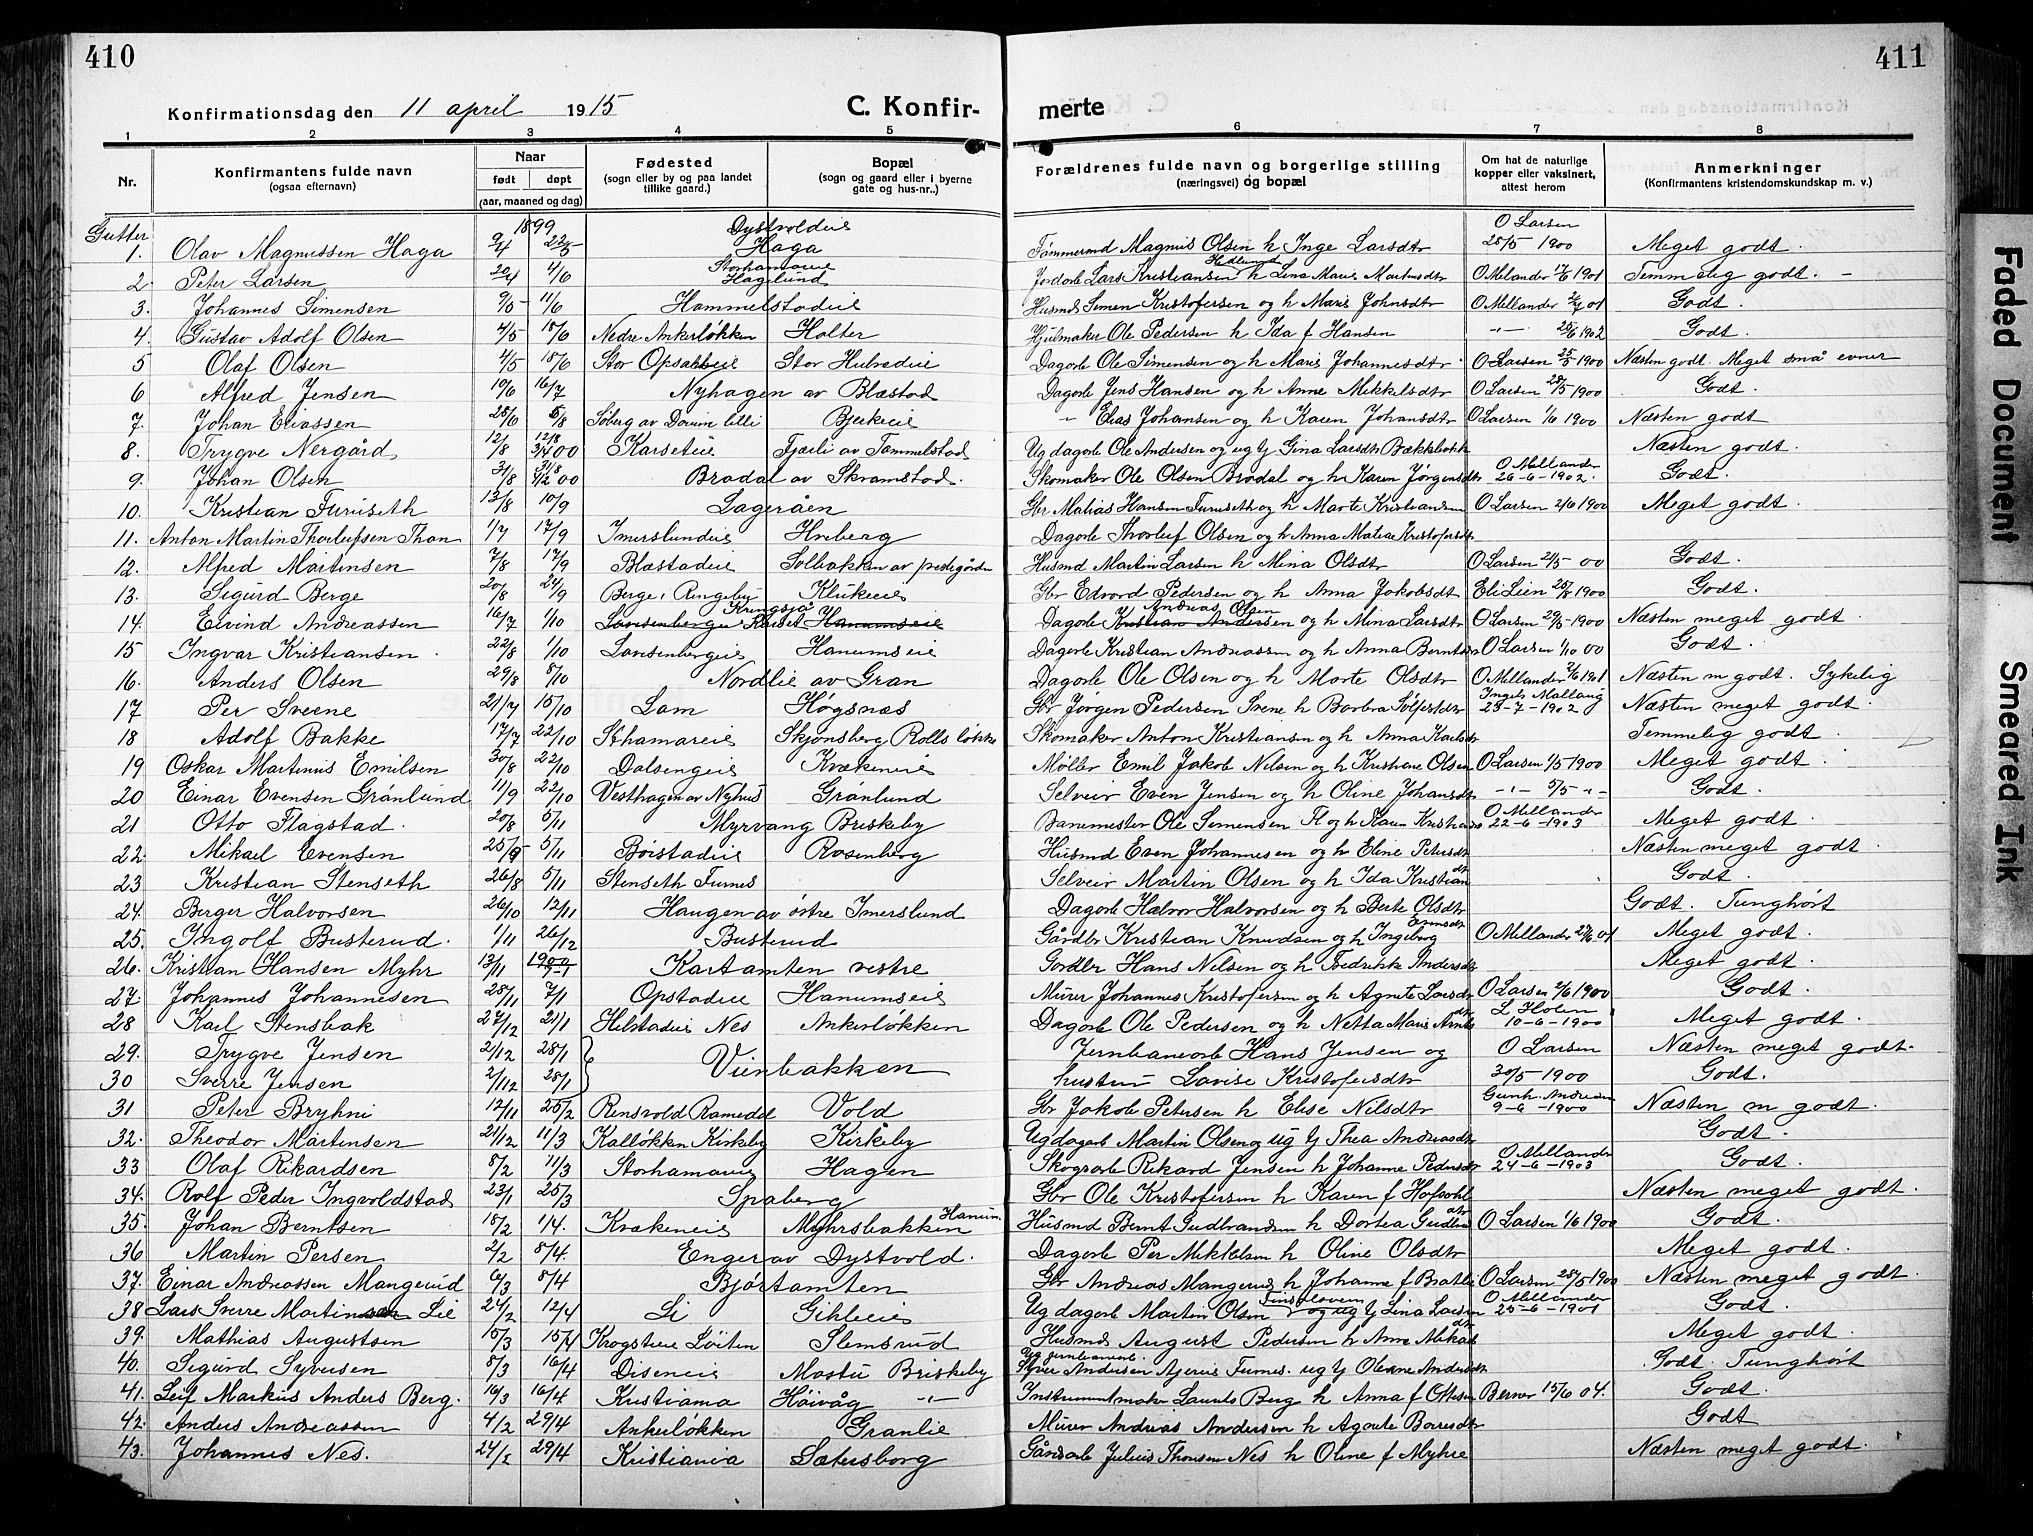 410
411
Konfirmationsdag den 11 april 1915
C. Konfir-
merte
1 2 3 4 5 6 7 8
Nr. Konfirmantens fulde navn (ogsaa efternavn) Naar født døpt (aar, maaned og dag) Fødested (sogn eller by og paa landet tillike gaard.) Bopæl (sogn og gaard eller i byerne gate og hus-nr..) Forældrenes fulde navn og borgerlige stilling (næringsvei) og bopæl Om hat de naturlige kopper eller vaksinert, attest herom Anmerkninger (Konfirmantens kristendomskundskap m. v.)
Gutter 1899
1. Olav Magnussen Haga 9/4 22/5 Dystvoldeie Haga Tømmermd Magnus Olsen h Inge Larsdtr O Larsen 28/5 1900 Meget godt.
2 Peter Larsen 20/4 4/6 Storhamareie Haglund Jordarb Lars Kristiansen Hedlund h Lina Marie Martinsdtr O Milander 1901 Temmelig godt. –
3. Johannes Simensen 9/5 11/6 Hammelstadeie Husmd Simen Kristofersen og h Marie Johnsdtr O Millander 01 Godt.
4. Gustav Adolf Olsen 4/5 18/6 Nedre Ankerløkken Holter Hjulmaker Ole Pedersen h Ida f Hansen -"- 25/6 1902 Godt.
5 Olaf Olsen 4/5 18/6 Stor Opsahleie Stor Hulradeie Dagarb Ole Simensen og h Marie Johannesdtr. O Larsen 25/5 1900 Næsten godt. Meget små evner
6 Alfred Jensen 10/6 16/7 Nyhagen av Blæstad Dagarb Jens Hansen og h Anne Mikkelsdtr O Larsen 28/5 1900 Godt.
7. Johan Eliassen 28/6 5/8 Søberg av Dørum lilli Bjerkeeie " Elias Johansen og h Karen Johansdtr O Larsen 1/6 1900 Næsten godt
8. Trygve Nergård 12/8 12/8 3/4 00 Karseteie Fjærli av Tommelstad Ug dagarb Ole Andersen og ug tj Gina Larsdtr Bækkelokk Næsten godt.
9. Johan Olsen 3/8 31/8 4/2 00 Bradal av Skramstad. Skomaker Ole Olsen Bradal og h Karen Jørgensdtr O Millander 26-6-1902. Godt.
10. Kristian Furuseth 13/8 10/9 Lageråen Gbr Matias Hansen Furuseth og h Marte Kristiansen O Larsen 2/6 1900 Meget godt.
11. Anton Martin Thorleifsen Thon 1/7 17/9 Imerslundeie Hveberg Dagarb Thorleif Olsen og h Anna Matea Kristofersdtr
12. Alfred Martinsen 7/8 17/9 Blæstadeie Solbakken av prestegården Husmd Martin Larsen h Mina Olsdtr O Larsen 21/5-00 Godt.
13. Sigurd Berge 20/8 24/9 Berge i Ringebu Klukeeie Gbr Edvard Pedersen og h Anna Jakobsdtr Eli Lien 1900 Godt.
14. Eivind Andreassen 16/7 1/10 Lausenbergeie Kringsjå Hanumseie Dagarb Kristian Andersen Andreas Olsen og h Mina Larsdtr O Larsen 29/5-1900 Næsten meget godt.
15 Ingvar Kristiansen. 22/8 1/10 Lausenbergeie Hanumseie Dagarb Kristian Andreassen og h Anna Berntsen O Larsen 1/10 00 Godt.
16. Anders Olsen 29/8 8/10 Nordlie av Gran Dagarb Ole Olsen og h Marte Olsdtr O Millander 1901 Næsten m godt. Sykelig
17 Per Sveene 21/7 15/10 Lam Høgsnæs Gbr Jørgen Pedersen Svene h Barbra Sølfestdtr Ingels Mallaug 23-7-1902 Næsten meget godt.
18 Adolf Bakke 17/7 22/10 Sthamareie Skjønsberg Rolls løkke Skomaker Anton Kristiansen og h Anna Karlsdtr Temmelig godt.
19 Oskar Martinus Emilsen 30/8 22/10 Dalsengeie Krækeneie Møller Emil Jakob Nilsen og h Kristiane Olsen O Larsen 1/5 1900 Meget godt.
20 Einar Evensen Grønlund 11/9 22/10 Vesthagen av Nyhus Grønlund Selveir Even Jensen og h Oline Johansdtr -"- 5/5 -"- Godt.
21 Otto Flagstad. 20/8 5/11 Myrvang Briskeby Banemester Ole Simensen Fl og h Karen Kristians O Millander 22-6-1903 Meget godt.
22. Mikael Evensen 25/9 5/11 Børstadeie Rosenberg Husmd Even Johannesen og h Eline Petersdtr Næsten meget godt.
23 Kristian Stenseth 26/8 5/11 Stenseth Furnes Selveir Martin Olsen og h Ida Kristiandtr Godt.
24. Berger Halvorsen 26/10 12/11 Haugen av østre Imerslund Dagarb Halvor Halvorsen og h Berte Olsdtr Godt. Tunghørt
25. Ingolf Busterud. 1/11 26/12 Busterud Gårdbr Kristian Knudsen og h Ingeborg Evensdtr O Millander 27/6 01 Meget godt.
26. Kristian Hansen Myhr 13/11 1900 7-1 Kartamten vestre Gardbr Hans Nilsen og h Fredrikke Andersdtr Meget godt.
27. Johannes Johannesen 28/11 7/1 Opstadeie Hanumseie Murer Johannes Kristofersen og h Agnete Larsdtr O Larsen 2/6 1900 Godt.
28 Karl Stensbak 27/12 21/1 Helstadeie Nes Ankerløkken Dagarb Ole Pedersen og h Netta Marie Arnts dtr L Holen 10-6-1900 Meget godt.
29. Trygve Jensen 2/12 28/1 Vienbakken Jernbanearb Hans Jensen og O Larsen Næsten meget godt.
30 Sverre Jensen 2/12 28/1 hustru Lovise Kristofersdtr 30/5-1900 Godt.
31 Peter Bryhni 12/11 25/2 Rensvold Romedal Vold Gbr Jakob Petersen h Elise Nilsdtr Gunh. Andresen 9-6-1900 Næsten m godt.
32. Theodor Martinsen 21/12 11/3 Kalløkken Kirkeby Kirkeby Ug dagarb Martin Olsen og ug tj Thea Andreasdtr Godt.
33 Olaf Rikardsen 8/2 11/3 Storhamareie Hagen Skogsarb Rikard Jensen h Johanne Pedersdtr O Millander 24-6-1903 Godt.
34. Rolf Peder Ingvoldstad 23/1 25/3 Spaberg Gbr Ole Kristofersen h Karen f Hofsohl Næsten meget godt.
35. Johan Berntsen 18/2 1/4. Krækeneie Myhrsbakken Hanum. Husmd Bernt Gudbrandsen h Dortea Gudbr dtr O Larsen 1/6 1900 Godt.
36 Martin Persen 2/2 8/4. Enger av Dystvold. Dagarb Per Mikkelsen h Oline Olsdtr Meget godt.
37. Einar Andreassen Mangerud 6/3 8/4 Bjørtamten Gbr Andreas Mangerud h Johanne f Bratli O Larsen 28/5 1900 Næsten meget godt.
38 Lars Sverre Martinsen Lie 24/2 12/4 Li Gihleeie Ug dagarb Martin Olsen og ug tj Lina Larsen O Millander 25-6-1901 Godt.
39. Mathias Augustsen 15/3 15/4 Krogsteie Løiten Slemsrud Husmd August Pedersen h Anne Mikaels dtr Meget godt.
40. Sigurd Syversen 8/3 16/4 Diseneie Mastu Briskeby Ug jernbanearb. Syver Andersen Ajerui Furnes. ug tj Oleane Andersdtr Godt. Tunghørt
41. Leif Markus Anders Berg. 16/3 16/4 Kristiania Høivåg -"- Instrumentmaker Laurits Berg h Anna f Ottesen Berner 15/6 04. Godt.
42. Anders Andreassen 4/2 29/4 Ankerløkken Granlie Murer Andreas Andersen h Agnete Baresdtr Godt
43. Johannes Nes. 24/2 29/4 Kristiania Sætersborg Gårdarb Julius Thorsen Nes h Oline f Myhre Næsten meget godt.
Faded Document
Smeared Ink